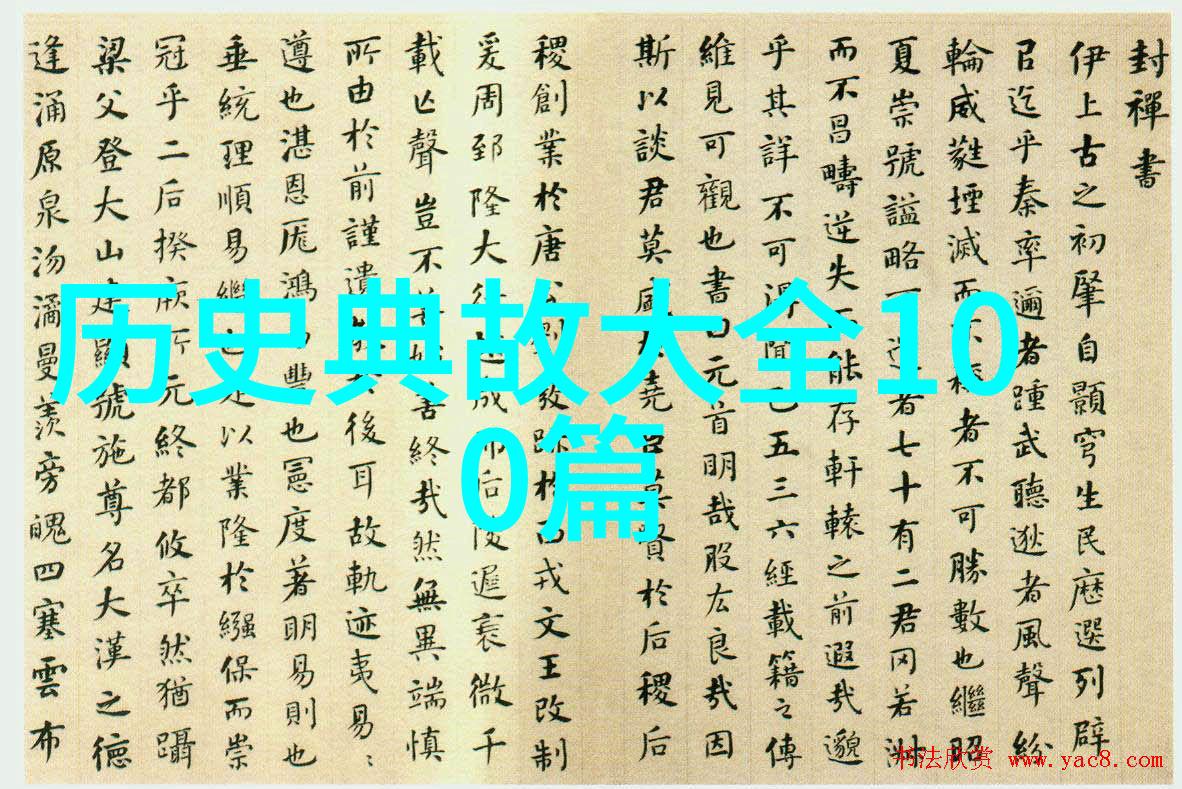 封禪書
伊上古之初肇自顥穹生民歷選列辟
㠯迄乎秦率邇者踵武聽逖者風聲紛
輪威蕤堙滅而不稱者不可勝數也繼昭
夏崇號謚略可道者七十有二君罔若淑
而不昌疇逆失而能存軒轅之前遐哉邈
乎其詳不可得聞已五三六經載籍之傳
維見可觀也書曰元首明哉股肱良哉因
斯以談君莫盛於堯臣莫賢於后稷后
稷創業於唐公劉發跡於西戎文王改制
爰周郅隆大行越成而后陵遲衰微千
載亡聲豈不善始善終哉然無異端慎
所由於前謹遺於後耳故軌迹夷易〻
遵也湛恩厖鴻易豐也憲度著明易則也
垂統理順易繼也是以業隆於繈保而崇
冠乎二后揆厥所元終都攸卒然猶躡
梁父登大山建顯號施尊名大漢之德
逢涌原泉沕潏曼羨旁魄四塞雲布
历史典故大全10
0篇
书法欣赏 www.yac8.com